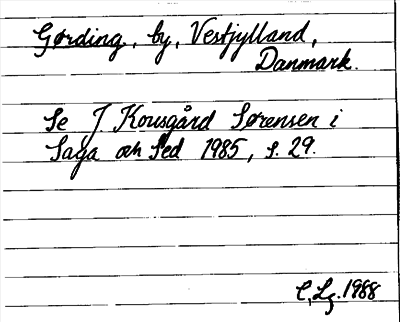 Gørding, by, Vestjylland,
Danmark.
Se J. Kousgård Sørensen i
Saga och Sed 1985, s. 29.
C. Lg. 1988